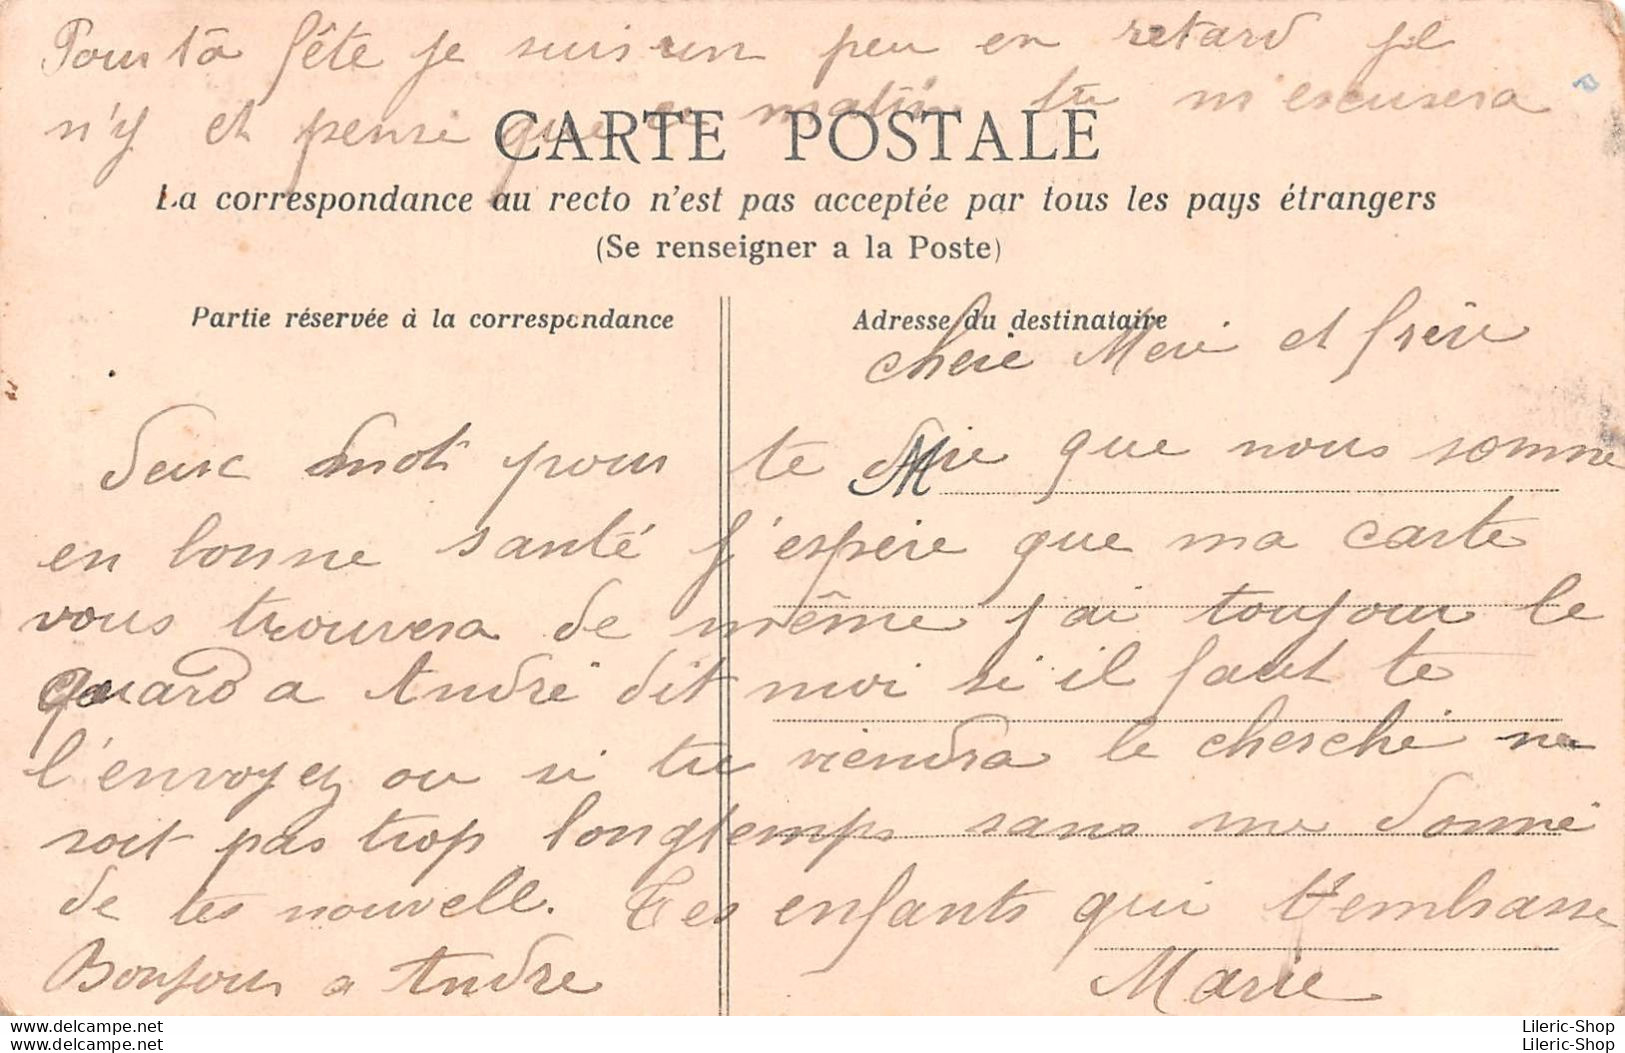 Pour ta fête je suis un peu en retard je
n'y et pensé que ce matin tu m'escusera
CARTE POSTALE
La correspondance au recto n'est pas acceptée par tous les pays étrangers
(Se renseigner a la Poste)
Partie réservée à la correspondance
Adresse du destinataire
chere Mere et frere
Deux mot pour te dire que nous somme
M
en bonne santé j'espere que ma carte
vous trouvera de même j'ai toujour le
quard a André dit moi si il faut te
l'envoyez ou si tu viendra le cherché ne
soit pas trop longtemps sans me donné
de tes nouvelle. Tes enfants qui t'embrasse
Bonjour a Andre
Marie
Lileric-Shop
Lileric-Shop